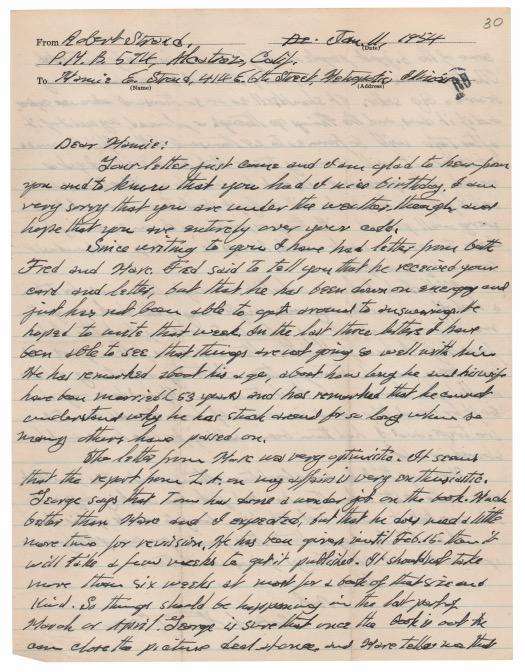 30
From Robert Stroud, Jan. 11, 1954
(Date)
P.M.B. 594 Alcatraz, Calif.
To Mamie E. Stroud, 414 E. 6th Street, Metropolis Illinois
(Name) (Address)
Dear Mamie:
Your letter just came and I am glad to hear from
you and to know that you had a nice birthday. I am
very sorry that you are under the weather, though, and
hope that you are entirely over your cold.
Since writing to you I have had letter from both
Fred and Marc. Fred said to tell you that he received your
card and letter, but that he has been down on energy and
just has not been able to get around to answering. He
hoped to write that week. In the last three letters I have
been able to see that things are not going so well with him.
He has remarked about his age, about how long he and his wife
have been married (53 years) and has remarked that he cannot
understand why he has stuck around for so long when so
many others have passed on.
The letter from Marc was very optimistic. It seems
that the report from L.A. on my affairs is very enthusiastic.
George says that Tom has done a wonder job on the book. Much
better than Marc and I expected, but that he does need a little
more time for revision. He has been given until Feb. 15 then it
will take a few weeks to get it published. It should not take
more than six weeks at most for a book of that size and
kind. So things should be happening in the last part of
March or April. George is sure that once the book is out he
can close the picture deal at once, and Marc tells me that